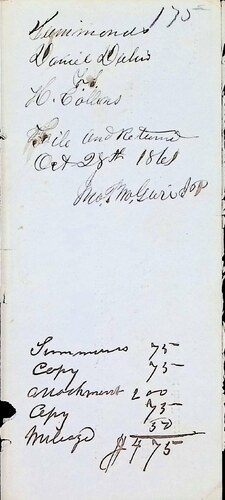 175
Summonds
Daniel Dalis
vs
H. Collons
File and Return
Oct 28th 1861
Summons 75
Copy 75
attachment 200
Copy 75
Mileage 50
$475